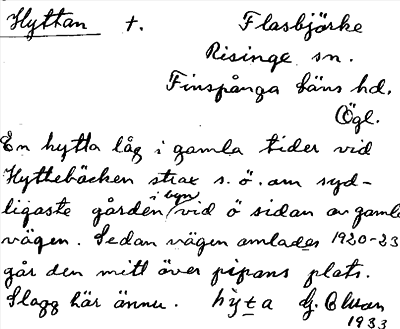 Hyttan t. Flasbjörke
Risinge sn.
Finspånga läns hd.
Ögl.
En hytta låg i gamla tider vid
Hyttebäcken strax s. ö. om syd-
ligaste gården i byn vid ö sidan av gamla
vägen. Sedan vägen omlades 1920-23
går den mitt över pipans plats.
Slagg här ännu. hỳta G.
1933